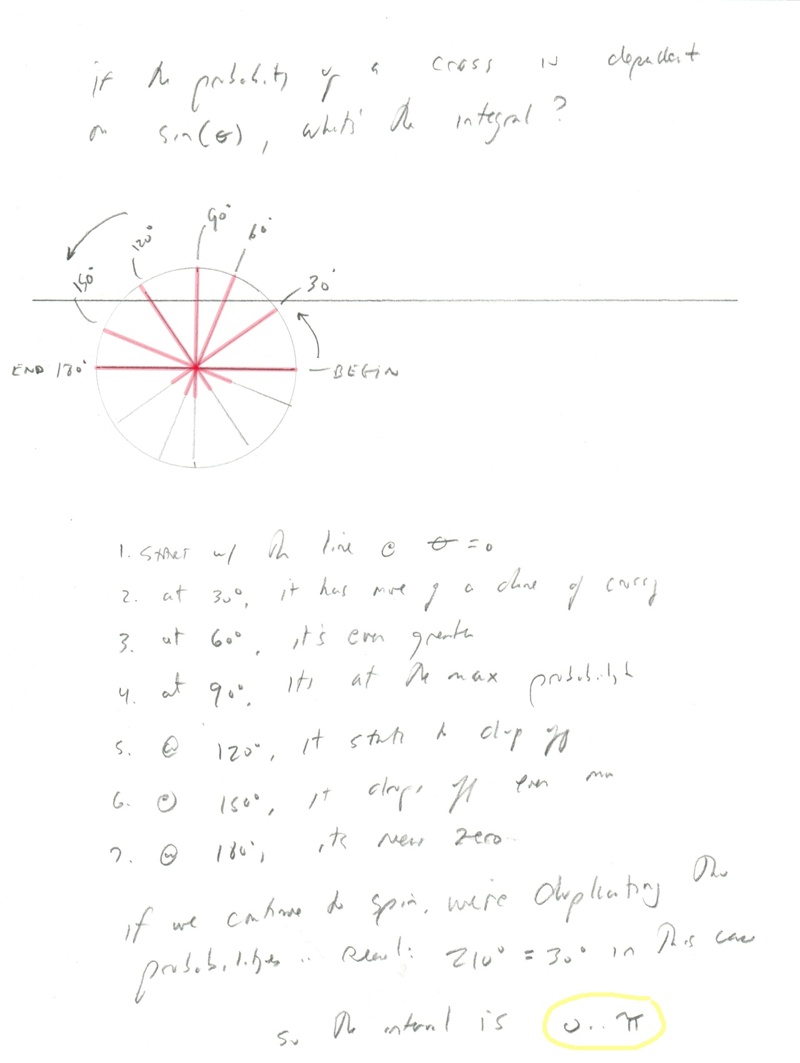 if the probability of a cross is dependent
on sin(θ), what's the integral?
90°
60°
120°
150°
30°
END 180°
BEGIN
1. START w/ the line @ θ = 0
2. at 30°, it has more of a chance of crossing
3. at 60°, it's even greater
4. at 90°, its at the max probability
5. @ 120°, it starts to drop off
6. @ 150°, it drops off even more
7. @ 180°, its near zero.
if we continue to spin, we're duplicating the
probabilities .. Recall: 210° = 30° in this case
so the interval is 0..π